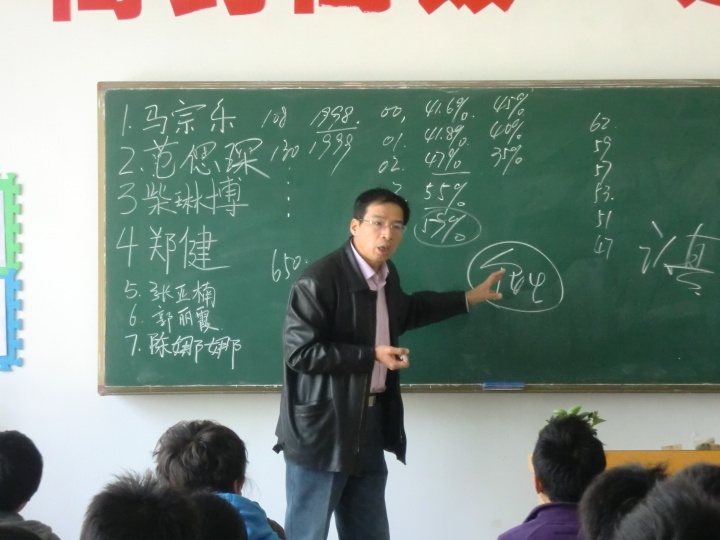 1.马宗乐 108 1998. 00, 41.6% 45% 62.
2.范偲琛 130 1999 01. 41.8% 40% 59
3柴琳搏 02. 47% 35% 57
55% 53.
55% 51
4郑健 650. 47
5.张亚楠
6.郭丽霞
7.陈娜娜